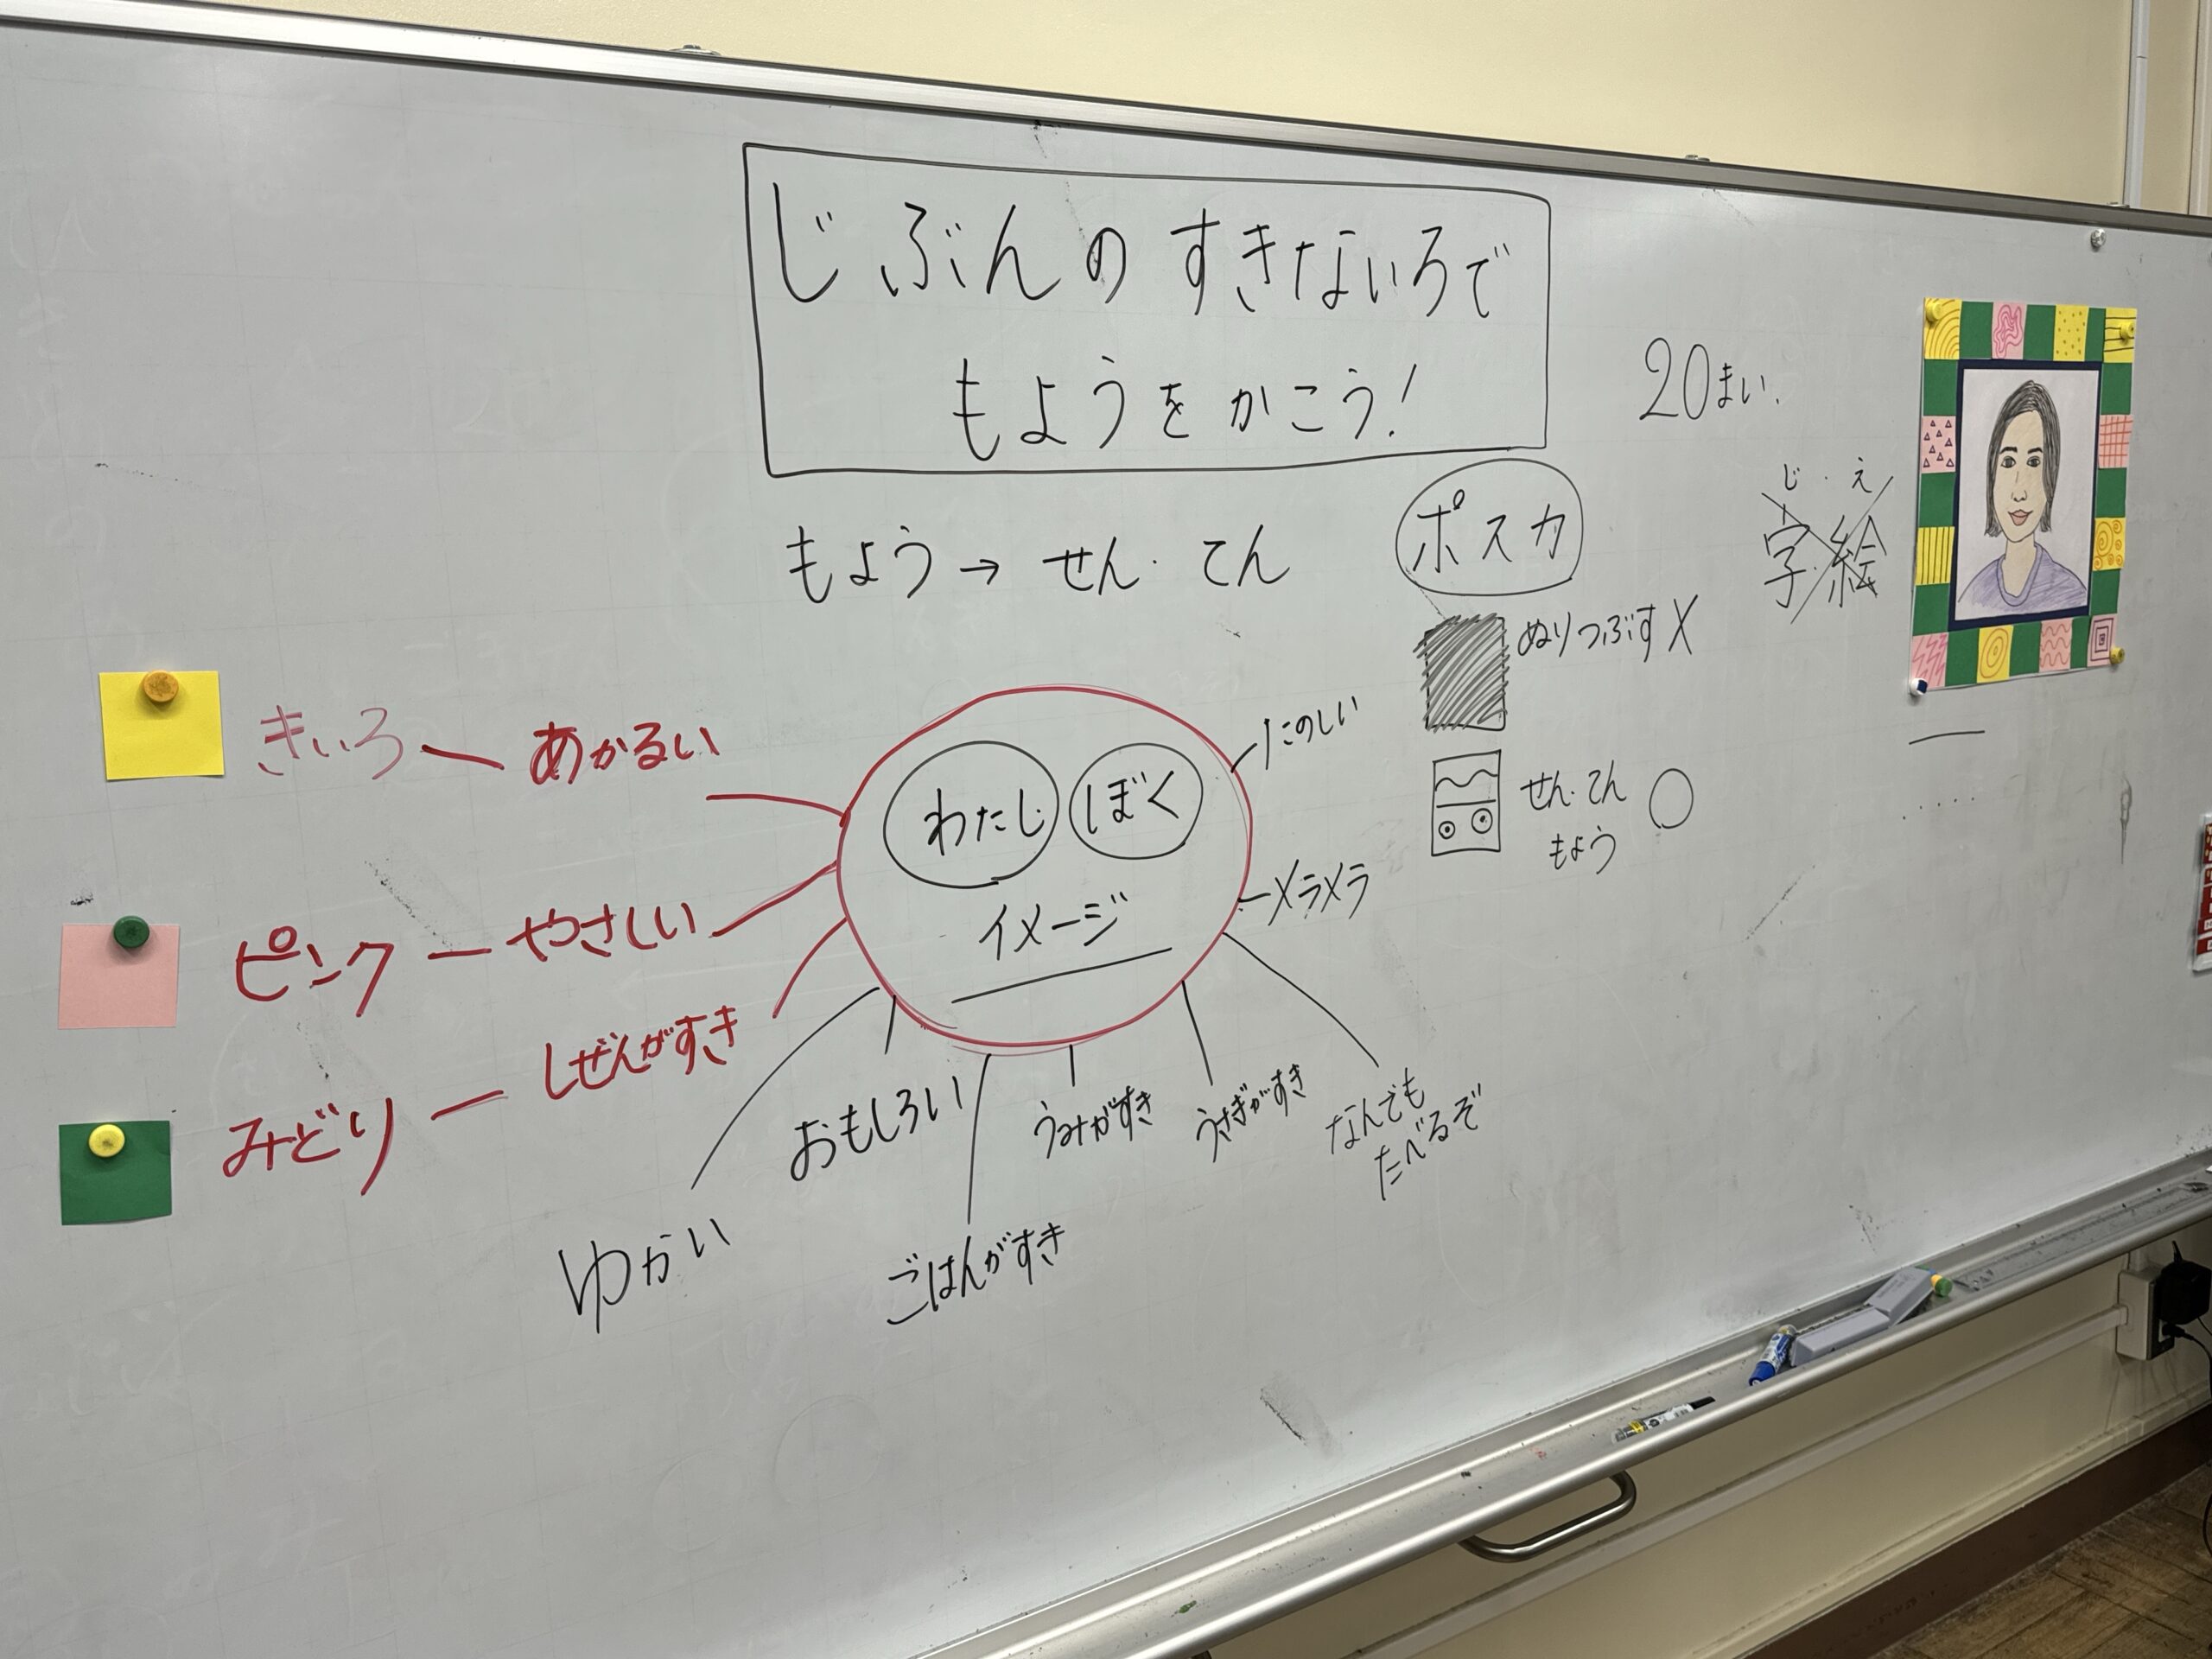 じぶんのすきないろで
もようをかこう!
20まい.
じ・え
字・絵
もよう→せん・てん
ポスカ
ぬりつぶす X
せん・てん
もよう ○
きいろ — あかるい
ピンク — やさしい
みどり — しぜんがすき
わたし ぼく
イメージ
たのしい
メラメラ
なんでも
たべるぞ
うさぎがすき
うみがすき
おもしろい
ごはんがすき
ゆかい